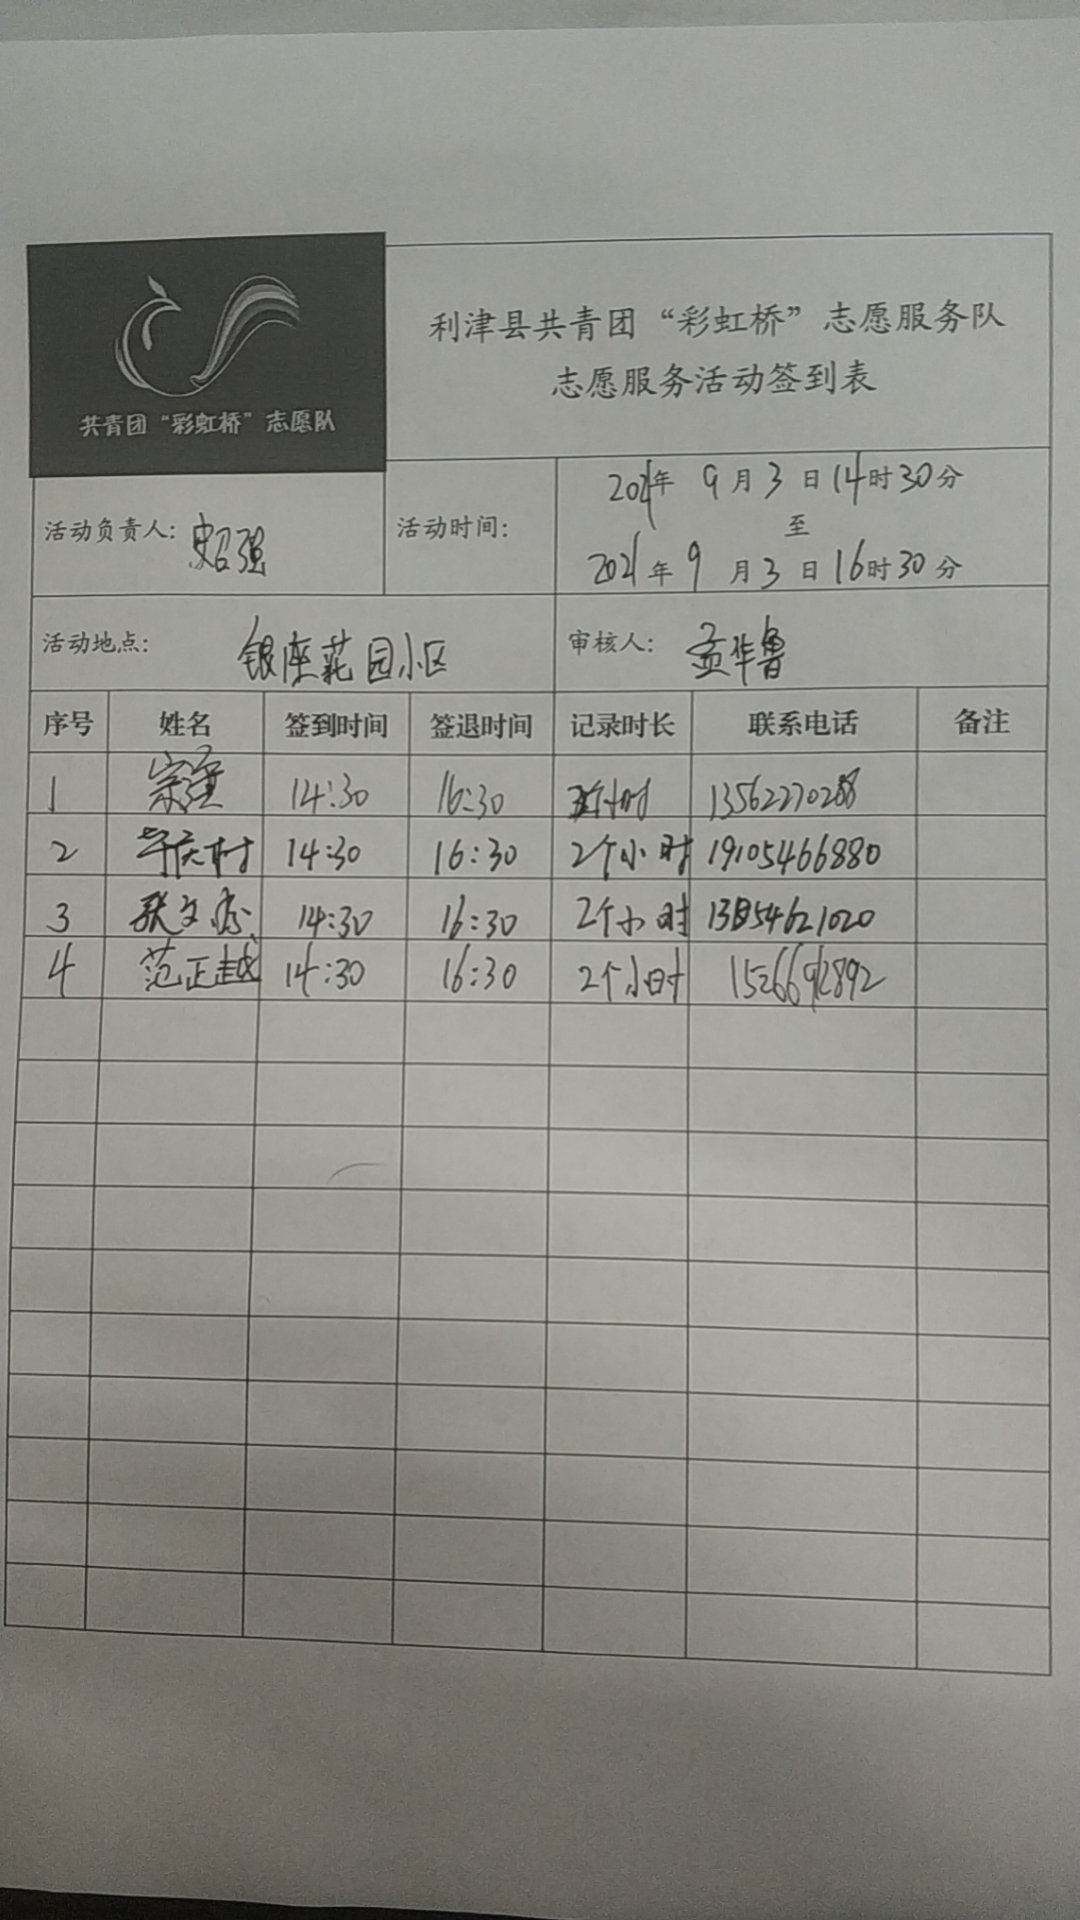 利津县共青团“彩虹桥”志愿服务队
志愿服务活动签到表
共青团“彩虹桥”志愿队
活动负责人: 史绍强
活动时间: 2021年 9月3日14时30分
至
2021年9月3日16时30分
活动地点: 银座花园小区 审核人: 孟华鲁
序号 姓名 签到时间 签退时间 记录时长 联系电话 备注
1 14:30 16:30 13562270288
2 14:30 16:30 2个小时 19105466880
3 张文 14:30 16:30 2个小时
4 范正越 14:30 16:30 2个小时